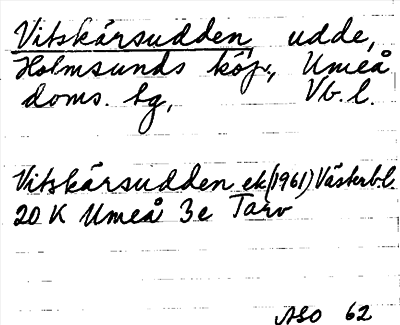 Vitskärsudden udde,
Holmsunds köp., Umeå
doms. bg, Vb. l.
Vitskärsudden ek (1961) Västerb.l.
20 K Umeå 3e Tarv
ASO 62